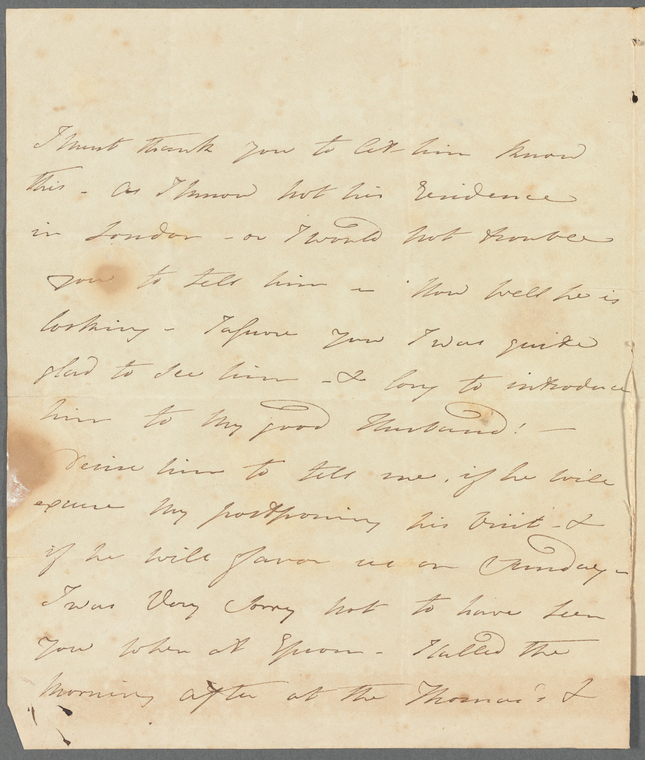 I must thank you to let him know
this - as I know not his residence
in London - or I would not trouble
you to tell him - How well he is
looking - I assure you I was quite
glad to see him - & long to introduce
him to my good Husband! -
Desire him to tell me, if he will
excuse my postponing his visit - &
if he will favor us on Sunday -
I was Very sorry not to have seen
you when at Epsom - I called the
morning after at the Thomas's &